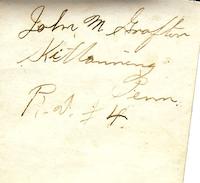 John M Grafton
Kittanning
Penn.
R.d. # 4.